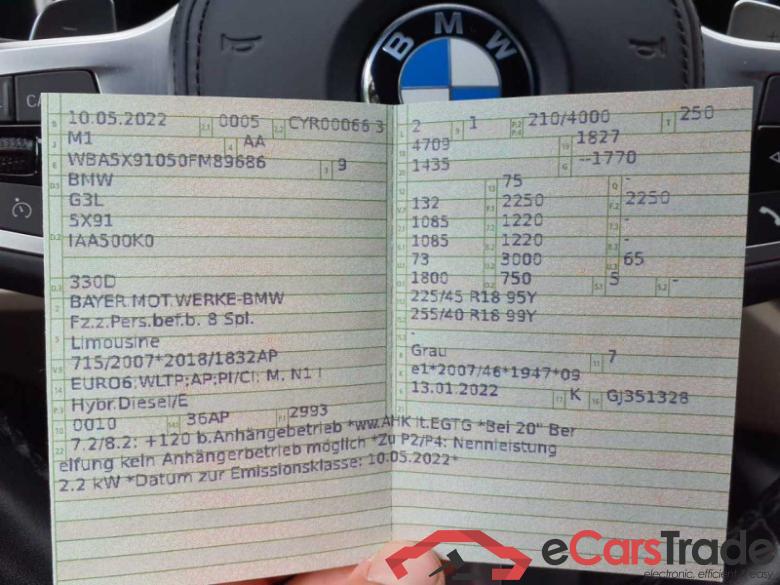 BMW
10.05.2022 0005 CYR00066 3
M1 AA
WBA5X91050FM89686 9
BMW
G3L
5X91
IAA500K0
330D
BAYER.MOT.WERKE-BMW
Fz.z.Pers.bef.b. 8 Spl.
Limousine
715/2007*2018/1832AP
EURO6;WLTP;AP;PI/CI; M, N1 I
Hybr.Diesel/E
0010 36AP 2993
2 1 210/4000 250
4709 1827
1435 --1770
75 -
132 2250 2250
1085 1220 -
1085 1220 -
73 3000 65
1800 750 5 -
225/45 R18 95Y
255/40 R18 99Y
-
Grau 7
e1*2007/46*1947*09
13.01.2022 K GJ351328
7.2/8.2: +120 b.Anhängebetrieb *ww.AHK lt.EGTG *Bei 20" Ber
eifung kein Anhängerbetrieb möglich *Zu P2/P4: Nennleistung
2.2 kW *Datum zur Emissionsklasse: 10.05.2022*
eCarsTrade
electronic, efficient & easy